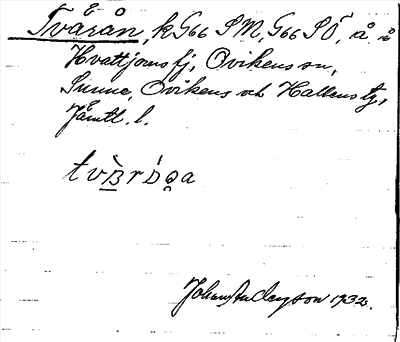 Tvärån, k G66 SM, G66 SÖ, å. å
Hvattjoms fj, Ovikens sn,
Sunne, Ovikens och Hallens tg,
Jämtl. l.
Johan Anderson 1932.